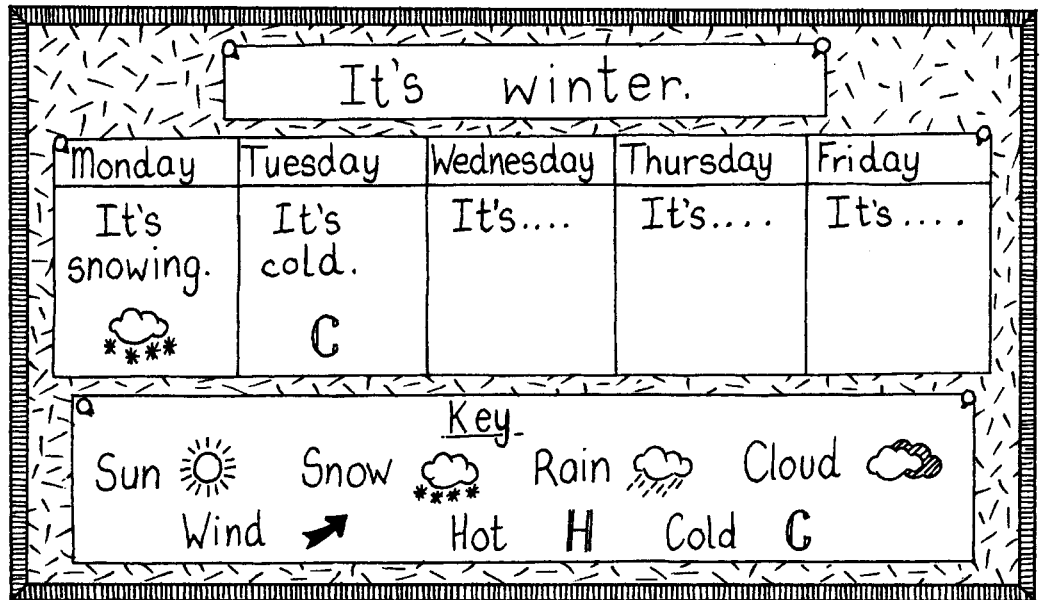 It's winter.
Monday Tuesday Wednesday Thursday Friday
It's It's It's.... It's.... It's....
snowing. cold.
C
Key
Sun Snow Rain Cloud
Wind Hot H Cold C